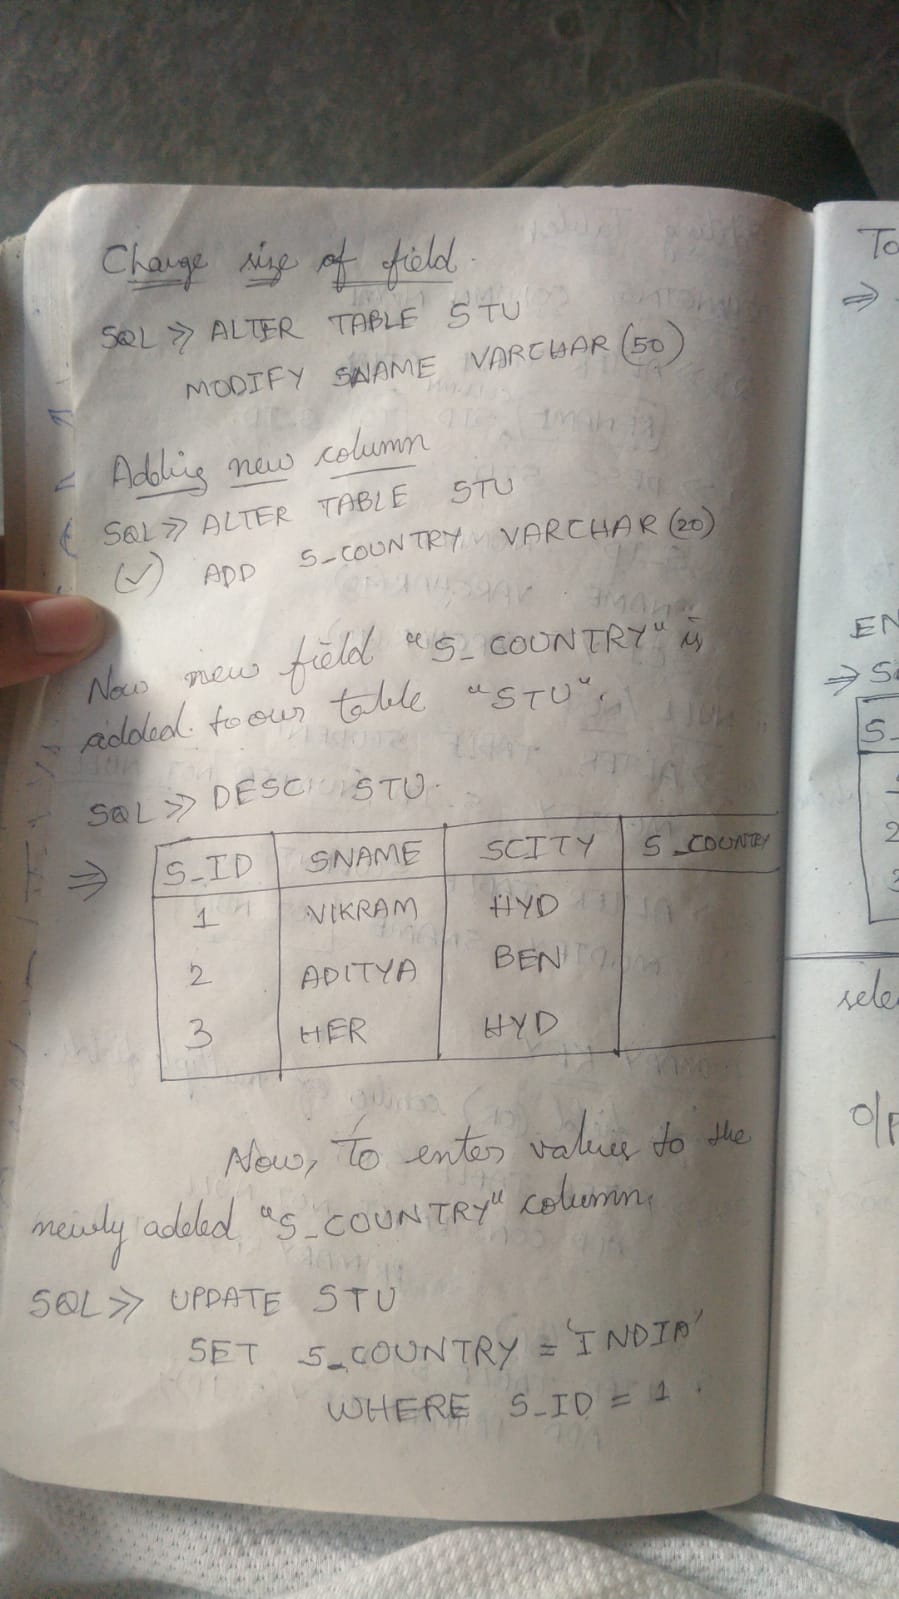 Change size of field.
SQL >> ALTER TABLE STU
MODIFY SNAME VARCHAR (50)
Adding new column
SQL >> ALTER TABLE STU
(✓) ADD S_COUNTRY VARCHAR (20)
Now new field "S_COUNTRY" is
added to our table "STU".
SQL >> DESC STU.
⇒ S_ID SNAME SCITY S_COUNTRY
1 VIKRAM HYD
2 ADITYA BEN
3 HER HYD
Now, To enter values to the
newly added "S_COUNTRY" column,
SQL >> UPDATE STU
SET S_COUNTRY = 'INDIA'
WHERE S_ID = 1.
To
⇒
EN
⇒ S
S_
2
3
sele
o/p